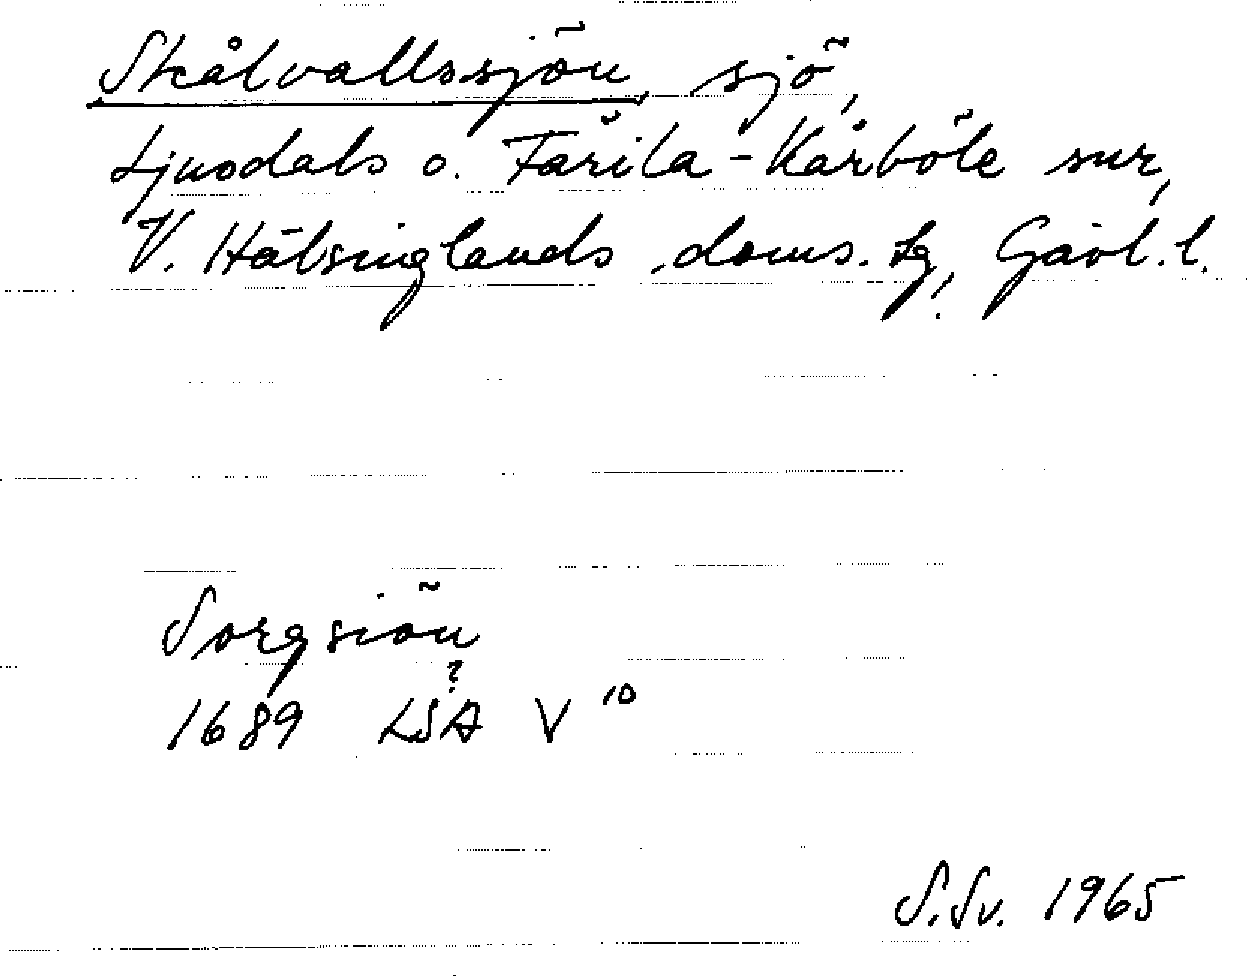 Skålvallssjön, sjö,
Ljusdals o. Färila-Kårböle snr,
V. Hälsinglands doms. tg, Gävl. l.
Sorgsiön
?
1689 LSA V 10
S. Sv. 1965